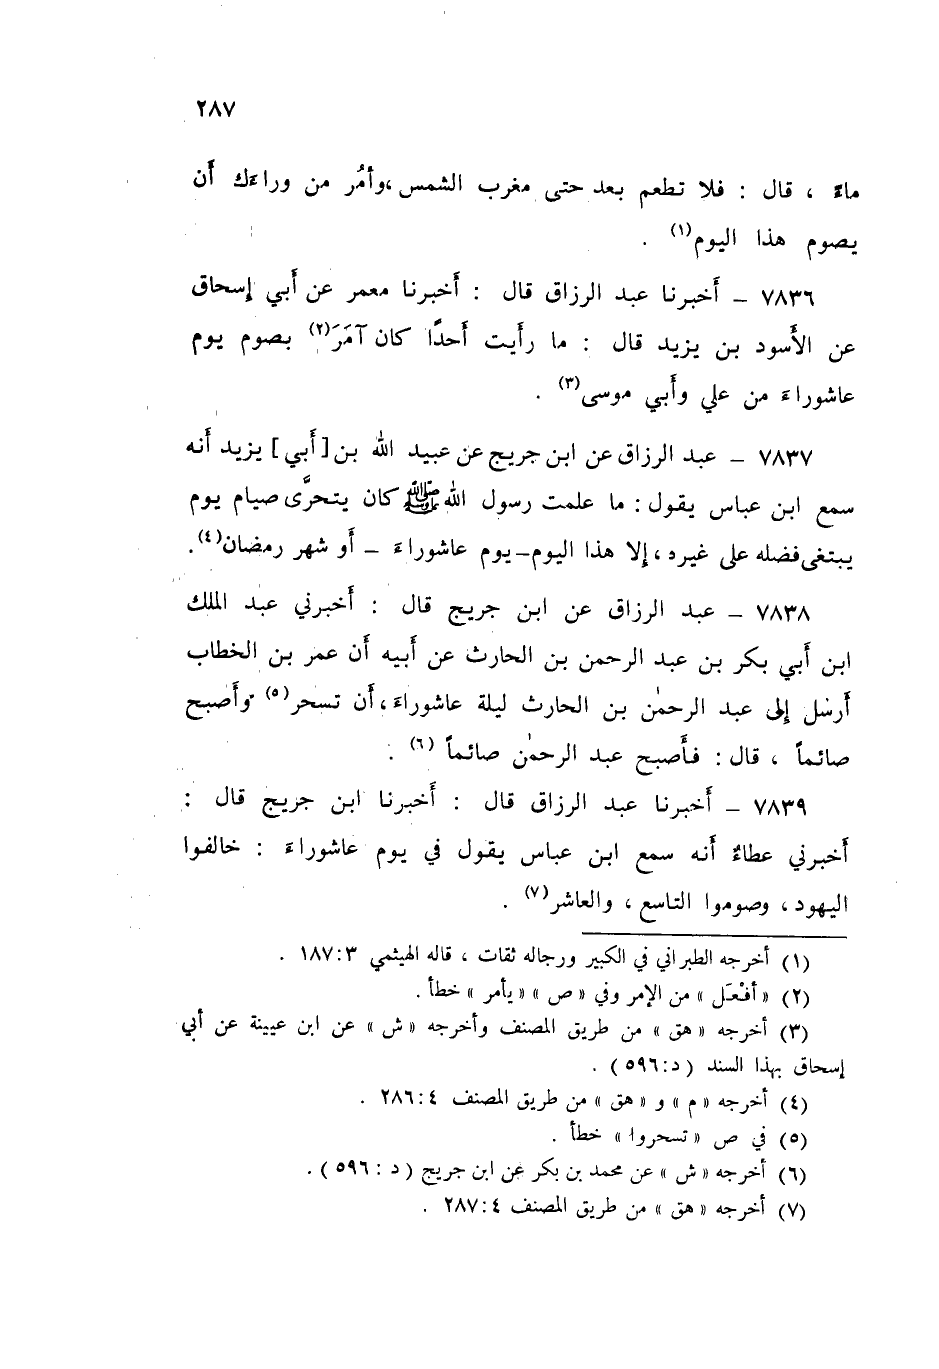 ٢٨٧
ماءً ، قال : فلا تطعم بعد حتى مغرب الشمس ،وأمُر من وراءك أَن
يصوم هذا اليوم(١) .
٧٨٣٦ – أَخبرنا عبد الرزاق قال : أَخبرنا معمر عن أَبي إسحاق
عن الأَسود بن يزيد قال : ما رأَيت أَحدًا كان آمَرَ(٢) بصوم يوم
عاشوراءَ من علي وأَبي موسى(٣) .
٧٨٣٧ – عبد الرزاق عن ابن جريج عن عبيد الله بن [أَبي] يزيد أَنه
سمع ابن عباس يقول : ما علمت رسول الله ﷺ كان يتحرَّى صيام يوم
يبتغي فضله على غيره ، إلا هذا اليوم–يوم عاشوراءَ – أَو شهر رمضان(٤).
٧٨٣٨ – عبد الرزاق عن ابن جريج قال : أَخبرني عبد الملك
ابن أَبي بكر بن عبد الرحمن بن الحارث عن أَبيه أَن عمر بن الخطاب
أَرسل إلى عبد الرحمٰن بن الحارث ليلة عاشوراءَ ، أَن تسحر(٥) وأَصبح
صائماً ، قال : فأَصبح عبد الرحمٰن صائماً (٦) .
٧٨٣٩ – أَخبرنا عبد الرزاق قال : أَخبرنا ابن جريج قال :
أَخبرني عطاءٌ أَنه سمع ابن عباس يقول في يوم عاشوراءَ : خالفوا
اليهود ، وصوموا التاسع ، والعاشر(٧) .
(١) أخرجه الطبراني في الكبير ورجاله ثقات ، قاله الهيثمي ٣:١٨٧ .
(٢) « أفْعَل » من الإمر وفي « ص » « يأمر » خطأ .
(٣) أخرجه « هق » من طريق المصنف وأخرجه « ش » عن ابن عيينة عن أبي
إسحاق بهذا السند (د:٥٩٦) .
(٤) أخرجه « م » و « هق » من طريق المصنف ٤:٢٨٦ .
(٥) في ص « تسحروا » خطأ .
(٦) أخرجه « ش » عن محمد بن بكر عن ابن جريج (د : ٥٩٦) .
(٧) أخرجه « هق » من طريق المصنف ٤:٢٨٧ .